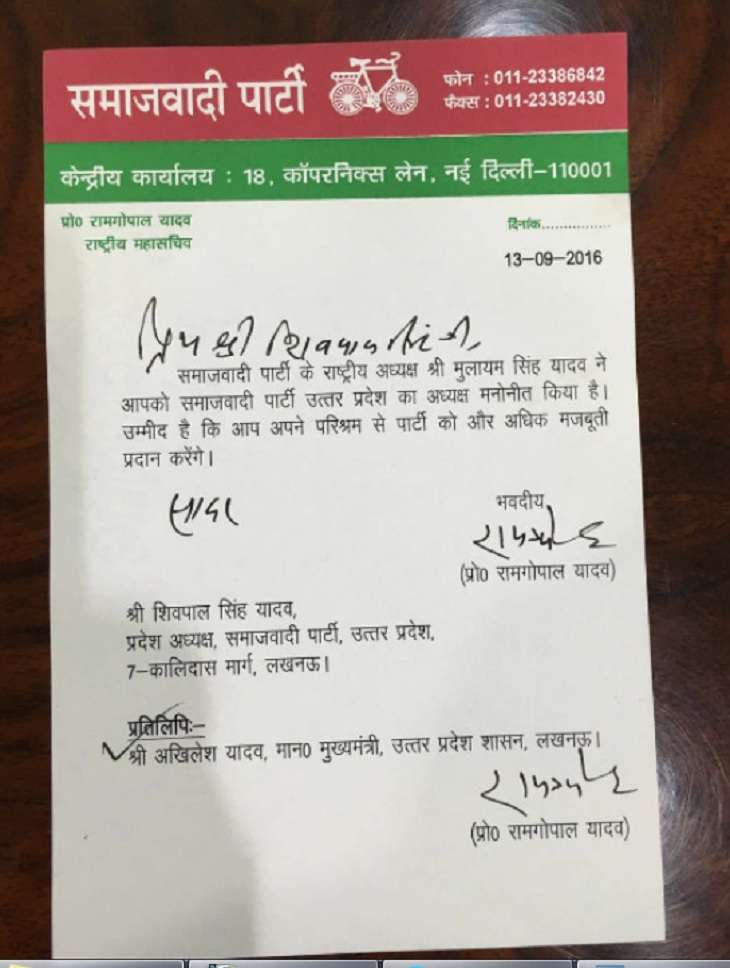 समाजवादी पार्टी
फोन : 011-23386842
फैक्स : 011-23382430
केन्द्रीय कार्यालय : 18, कॉपरनिक्स लेन, नई दिल्ली-110001
प्रो0 रामगोपाल यादव
राष्ट्रीय महासचिव
दिनांक................
13-09-2016
प्रिय श्री शिवपाल सिंह जी,
समाजवादी पार्टी के राष्ट्रीय अध्यक्ष श्री मुलायम सिंह यादव ने
आपको समाजवादी पार्टी उत्तर प्रदेश का अध्यक्ष मनोनीत किया है।
उम्मीद है कि आप अपने परिश्रम से पार्टी को और अधिक मजबूती
प्रदान करेंगे।
सादर
भवदीय
(प्रो0 रामगोपाल यादव)
श्री शिवपाल सिंह यादव,
प्रदेश अध्यक्ष, समाजवादी पार्टी, उत्तर प्रदेश,
7-कालिदास मार्ग, लखनऊ।
प्रतिलिपिः-
श्री अखिलेश यादव, मान0 मुख्यमंत्री, उत्तर प्रदेश शासन, लखनऊ।
(प्रो0 रामगोपाल यादव)